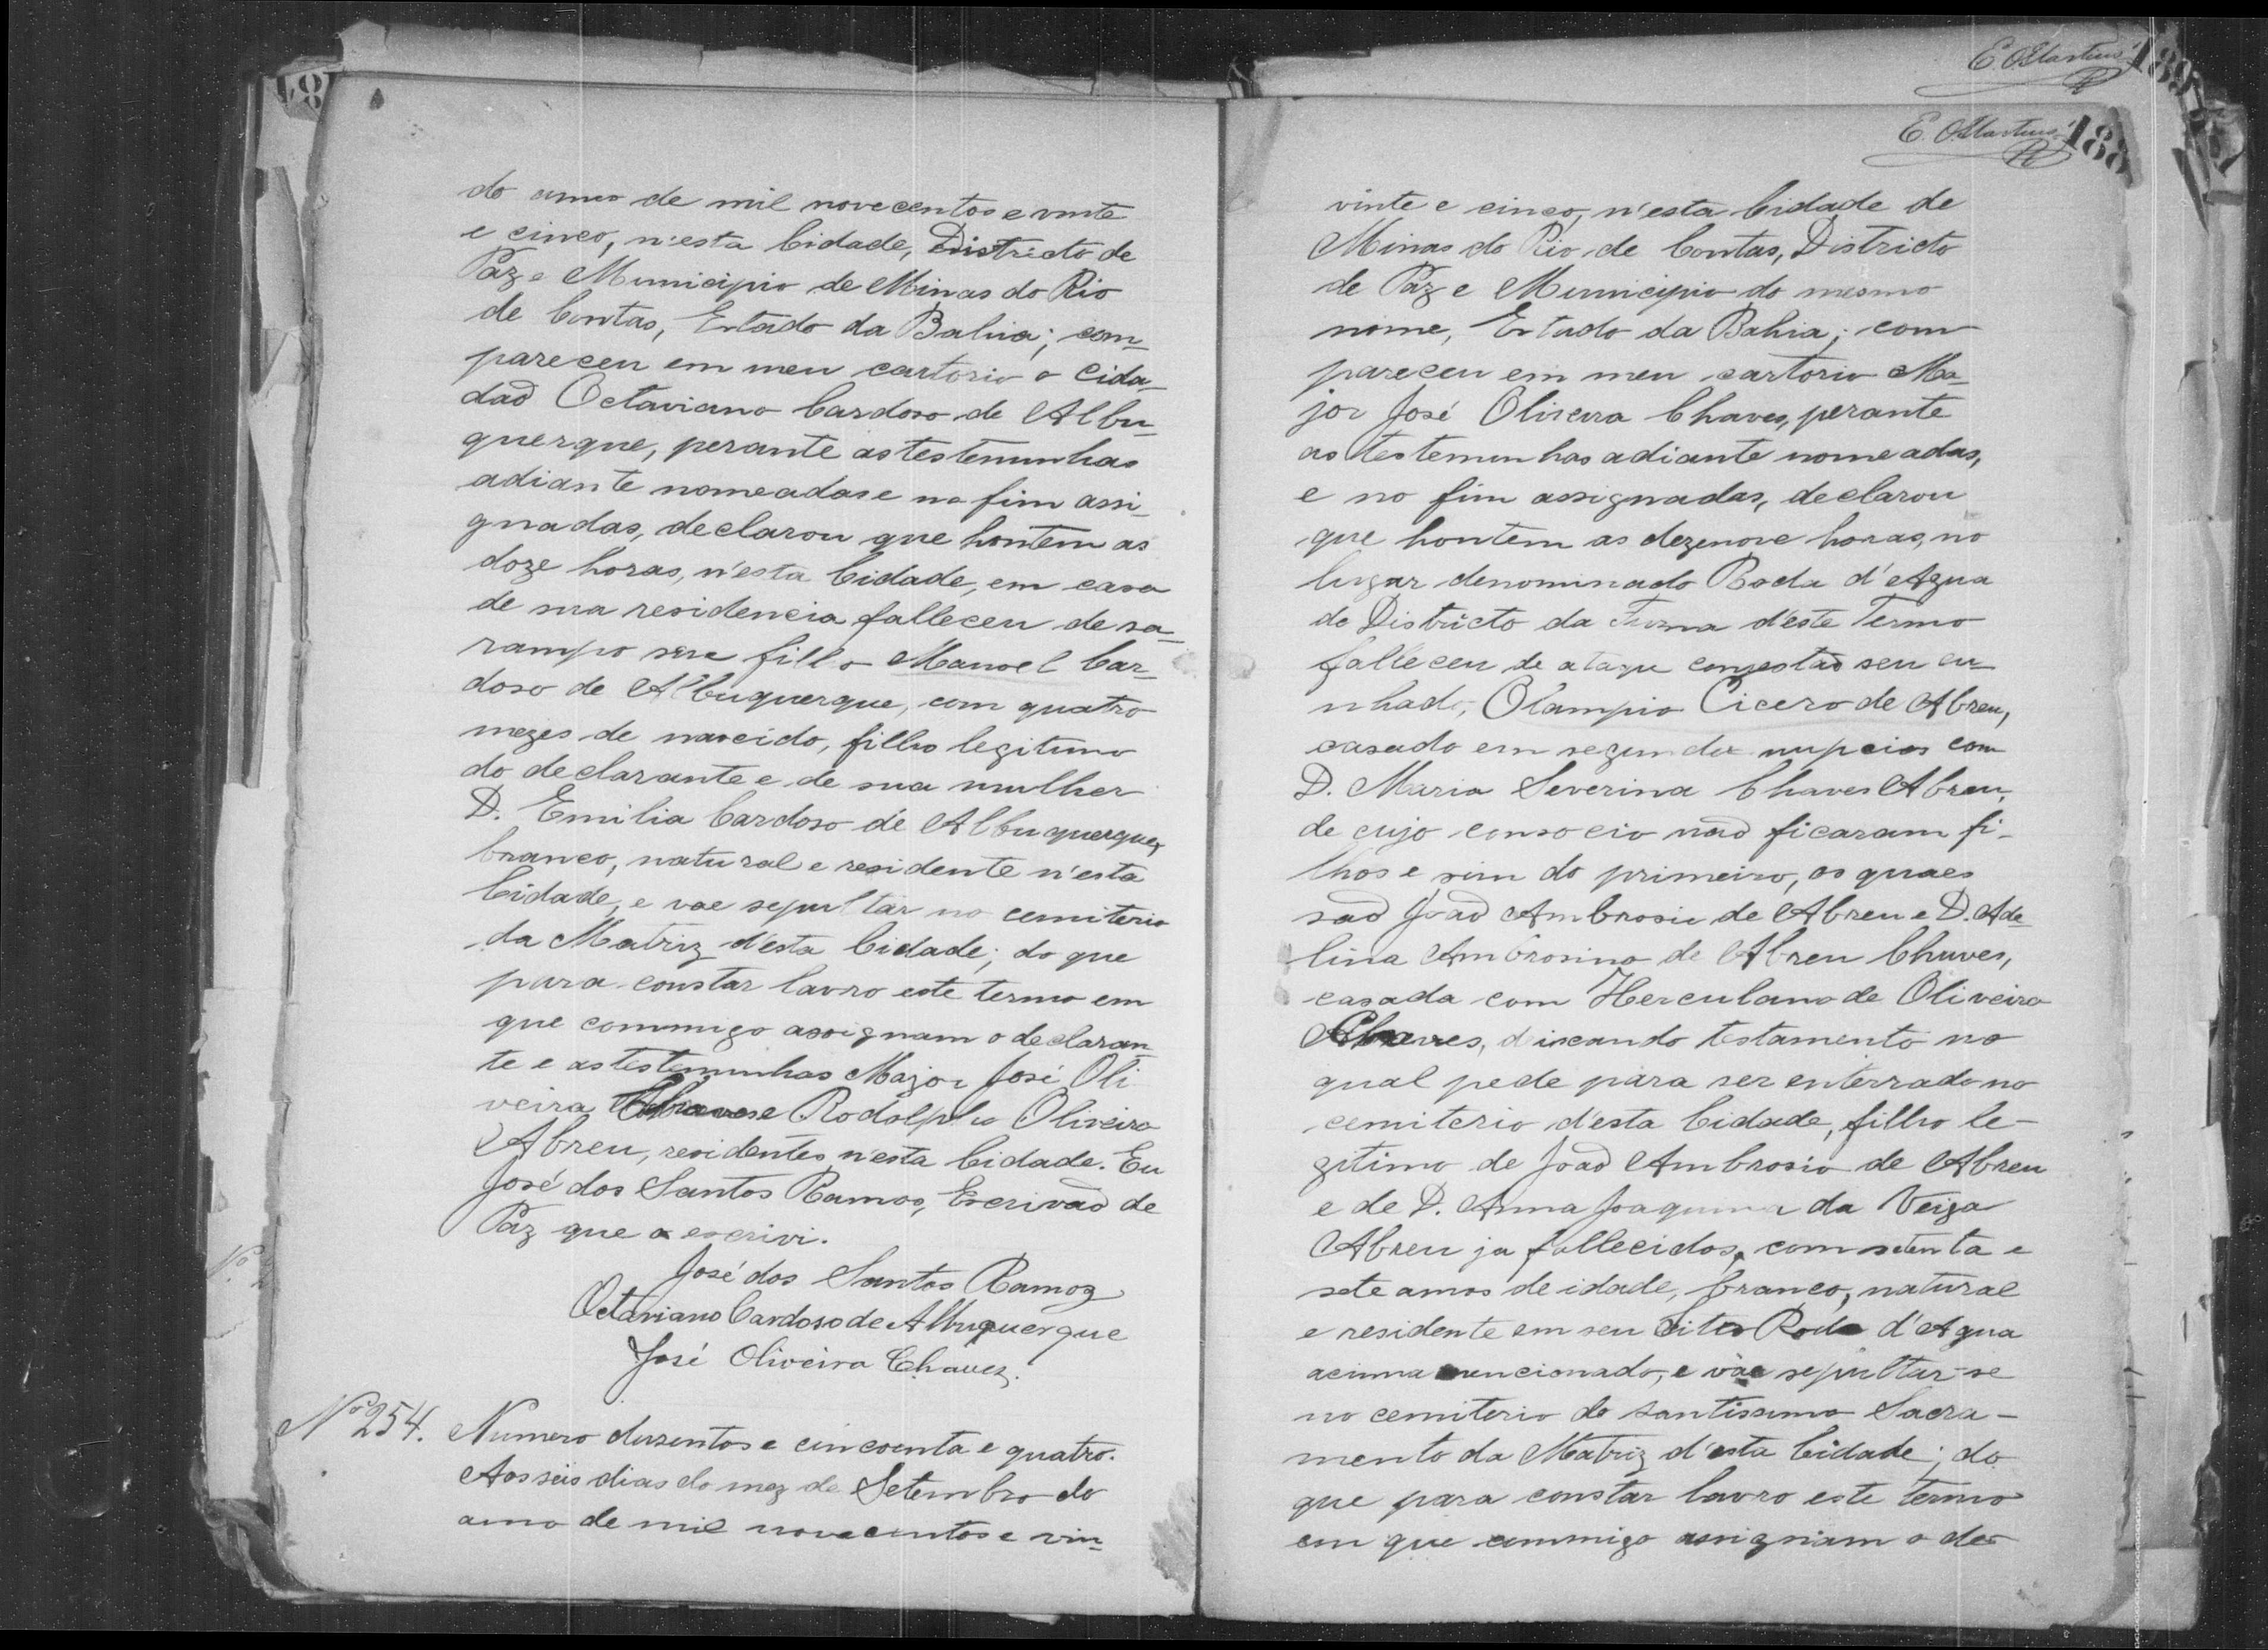 187
do anno de mil novecentos e vinte
e cinco, n'esta Cidade, Districto de
Paz e Municipio de Minas do Rio
de Contas, Estado da Bahia; com-
pareceu em meu cartorio o Cida-
dão Octaviano Cardoso de Albu-
querque, perante as testemunhas
adiante nomeadas e no fim assi-
gnadas, declarou que hontem as
doze horas, n'esta Cidade, em casa
de sua residencia falleceu de sa-
rampo seu filho Manoel Car-
doso de Albuquerque, com quatro
mezes de nascido, filho legitimo
do declarante e de sua mulher
D. Emilia Cardoso de Albuquerque,
branco, natural e residente n'esta
Cidade, e vae sepultar no cemiterio
da Matriz d'esta Cidade; do que
para constar lavro este termo em
que commigo assignam o declaran-
te e as testemunhas Major José Oli
veira Chaves e Rodolpho Oliveira
Abreu, residentes n'esta Cidade. Eu
José dos Santos Ramos, Escrivão de
Paz que o escrivi.
José dos Santos Ramos
Octaviano Cardoso de Albuquerque
José Oliveira Chaves.
Nº 254. Numero dusentos e cincoenta e quatro.
Aos seis dias do mez de Setembro do
anno de mil novecentos e vin-
E. O. Martins 189
E. O. Martins 188
vinte e cinco, n'esta Cidade de
Minas do Rio de Contas, Districto
de Paz e Municipio do mesmo
nome, Estado da Bahia; com
pareceu em meu cartorio Ma-
jor José Oliveira Chaves, perante
as testemunhas adiante nomeadas,
e no fim assignadas, declarou
que hontem as dezenove horas, no
lugar denominado Roda d'Agua
do Districto da Furna d'este Termo
falleceu de ataque congestão seu cu-
nhado, Olampio Cicero de Abreu,
casado em segunda nupcias com
D. Maria Severina Chaves Abreu,
de cujo consocio não ficaram fi-
lhos e sim do primeiro, os quaes
são João Ambrosio de Abreu e D. Ade-
lina Ambrosina de Abreu Chaves,
casada com Herculano de Oliveira
Chaves, dixando testamento no
qual pede para ser enterrado no
cemiterio d'esta Cidade, filho le-
gitimo de João Ambrosio de Abreu
e de D. Anna Joaquina da Veiga
Abreu ja fallecidos, com setenta e
sete annos de idade, branco, natural
e residente em seu Sitio Roda d'Agua
acima mencionado, e vae sepultar-se
no cemiterio do Santissimo Sacra-
mento da Matriz d'esta Cidade; do
que para constar lavro este termo
em que commigo assignam o de-